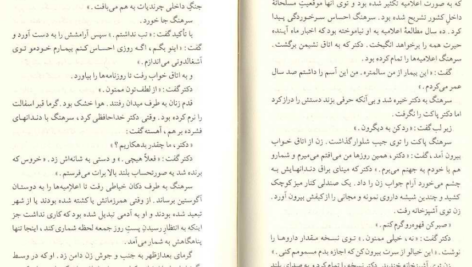 که به صورت اعلامیه تکثیر شده بود و توی آنها موقعیت مسلحانهٔ
داخل کشور تشریح شده بود. سرهنگ احساس سرخوردگی پیدا
کرد. ده سال مطالعهٔ اعلامیه به او نیاموخته بود که اخبار ماه آینده،
حیرت همه را برخواهد انگیخت. دکتر که به اتاق نشیمن برگشت،
سرهنگ اعلامیه‌ها را تمام کرده بود.
گفت: «این بیمار از من سالمتره. من این آسم را داشتم صد سال
عمر می‌کردم.»
سرهنگ به دکتر خیره شد و بی آنکه حرفی بزند دستش را دراز کرد
تا دکتر پاکت را نگرفت.
زیر لب گفت: «ردکن به دیگرون.»
سرهنگ پاکت را توی جیب شلوار گذاشت. زن از اتاق خواب
بیرون آمد، گفت: «دکتر، همین روزها من می‌افتم می‌میرم و شمارو
هم با خودم به جهنم می‌برم.» دکتر که مینای براق دندانهایش به
چشم می‌آمد آرام جواب زن را داد. یک صندلی کنار میز کوچک
کشید و چندین شیشه داروی نمونه و مجانی را از کیفش بیرون آورد.
زن توی آشپزخانه رفت.
«صبر کن قهوه رو گرم کنم.»
دکتر گفت: «نه، خیلی ممنون.» توی نسخه مقدار داروها را
نوشت. «ابداً نمی‌ذارم این فرصت رو پیدا کنین که اجازه بدم مسمومم کنین.»
زن توی آشپزخانه خندید. دکتر نسخه را تمام کرد و به صدای بلند
جنگ داخلی چرندیات به هم می‌بافت.»
سرهنگ جا خورد.
با تأکید گفت: «تب نداشتم.» سپس آرامشش را به دست آورد و
گفت: «اینو بگم، اگه روزی احساس کنم بیمارم خودمو توی
آشغالدونی می‌اندازم.»
و به اتاق خواب رفت تا روزنامه‌ها را بیاورد.
دکتر گفت: «از لطفتون ممنون.»
قدم زنان به طرف میدان رفتند. هوا خشک بود. گرما قیر اسفالت
را نرم کرده بود. وقتی دکتر خداحافظی کرد، سرهنگ با دندانهای
فشرده بر هم، آهسته گفت:
«دکتر، ما چقدر بدهکاریم؟»
دکتر گفت: «فعلاً هیچی.» و دستی به شانه‌اش زد. «خروس که
برنده شد یه صورتحساب بلند بالا براتون می‌فرستم.»
سرهنگ به طرف دکان خیاطی رفت تا اعلامیه‌ها را به دوستان
آگوستین برساند. از وقتی همرزمانش یا کشته شده بودند یا از شهر
تبعید شده بودند و او به آدمی تبدیل شده بود که کاری نداشت جز
اینکه به انتظار رسیدن پست روز جمعه لحظه شماری کند، اینجا تنها
پناهگاهش به شمار می‌آمد.
گرمای بعدازظهر به جنب و جوش زن دامن زد. او که در وسط